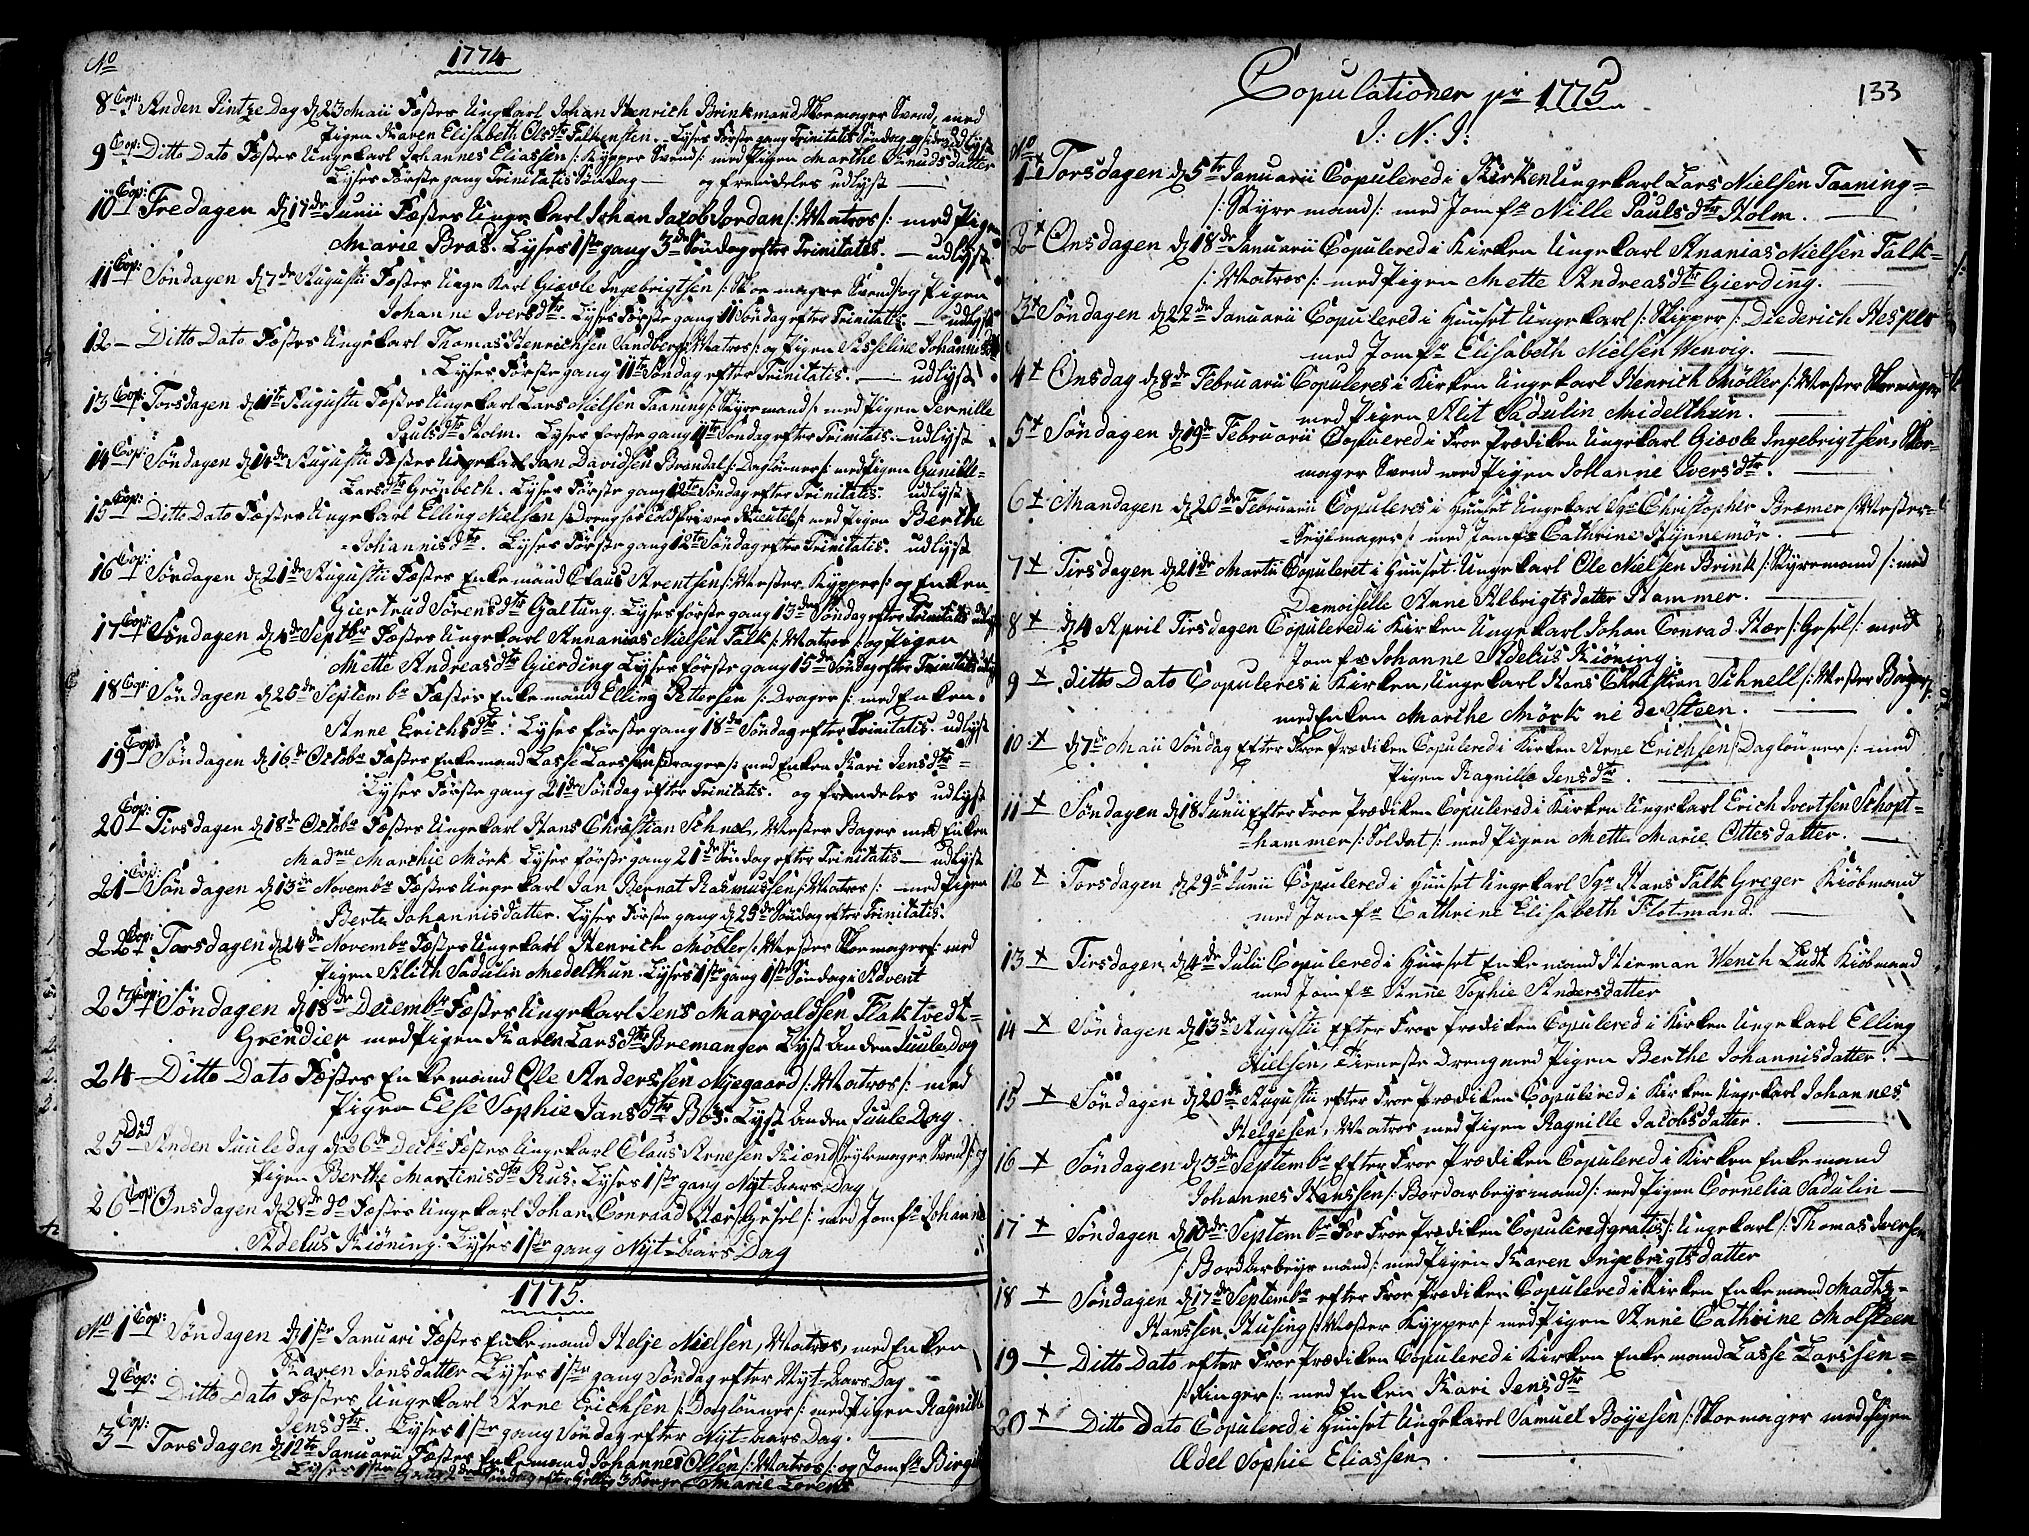 No
1774
8 Cop: Anden Pintze Dag d 23 Maii Fæstes Ungkarl Johan Henrich Brinkmand Skomager Svend, med
Pigen Karen Elisabeth Olsdtr Falkensten. Lyses Første gang Trinitatis Søndag
9 Cop: Ditto Dato Fæstes Ungekarl Johannes Eliassen /: Kypper Svend :/ med Pigen Marthe Knudsdatter
Lyses Første gang Trinitatis Søndag — og fremdeles udlyst —
10 Cop: Fredagen d 17de Junii Fæstes Ungekarl Johan Jacob Jordan /: Matros :/ med Pigen
Marie Bras. Lyses 1ste gang 3de Søndag efter Trinitatis. — udlyst
11 Cop: Søndagen d 7de Augustii Fæstes Unge Karl Giævle Ingebrigtsen /: Skoemager Svend :/ og Pigen
Johanne Iversdtr. Lyses Første gang 11 Søndag efter Trinitatis — udlyst
12 — Ditto Dato Fæstes Ungekarl Thomas Henrichsen Sandberg /: Matros :/ og Pigen Asseline Johannisd
Lyses Første gang 11te Søndag efter Trinitatis. — udlyst
13 Cop: Torsdagen d 11te Augustii Fæstes Ungekarl Lars Nielsen Taaning /: Styrmand /: med Pigen Pernille
Pulsdtr Holm. Lyses første gang 11te Søndag efter Trinitats — udlyst
14 Cop: Søndagen d 14de Augustii Fæstes Ungekarl Jan Davidsen Brendal /: Dagløiner :/ med Pigen Gunilde
Larsdtr Grønbech. Lyses Første gang 12te Søndag efter Trinitatis. udlyst
15 Cop: Ditto Dato Fæstes Ungekarl Elling Nielsen /: Dreng hos med Pigen Berthe
Johannisdtr. Lyses Første gang 12te Søndag efter Trinitatis. udlyst
16 Cop: Søndagen d 21de Augustii Fæstes Enkemand Claus Arentsen /: Mester Kypper :/ og Enken
Giertrud Sørensdtr Galtung. Lyses første gang 13de Søndag efter Trinitatis
17 Cop: Søndagen d 4de Septbr Fæstes Ungekarl Annanias Nielsen Falk /: Matros :/ og Pigen
Mette Andreasdtr Gierding Lyses første gang 15de Søndag efter Trinitatis
18 Cop: Søndagen d 25de Septembr Fæstes Enkemand Elling Petersen /: Drager :/ med Enken
Anne Erichsdtr. Lyses første gang 18de Søndag efter Trinitatis. udlyst
19 Cop: Søndagen d 16de Octobr Fæstes Enkemand Lasse Larssen /: Drager :/ med Enken Kari Jensdtr
Lyses Første gang 21de Søndag efter Trinitatis. og fremdeles udlyst
20 Cop: Tirsdagen d 18de Octobr Fæstes Ungekarl Hans Christian Schnel, Mester Bager med Enken
Madme Marchie Mörk Lyses første gang 21de Søndag efter Trinitatis — udlyst
21 Cop: Søndagen d 13de Novembr Fæstes Ungekarl Jan Bernat Rasmussen /: Matros /: med Pigen
Berte Johannisdatter. Lyses Første gang d 25de Søndag efter Trinitatis.
22 Cop: Torsdagen d 24de Novembr Fæstes Ungekarl Henrich Möller /: Mester Skomager :/ med
Pigen Alith Sadulin Medelthun. Lyses 1ste gang 1ste Søndag i Advent
23 Cop: Søndagen d 18de Decembr Fæstes Ungekarl Jens Marqvaldsen Flaktvedt
Grendier med Pigen Karen Larsdtr Bremanger Lyst Anden Juule Dag
24 — Ditto Dato Fæstes Enkemand Ole Anderssen Nyegaard /: Matros /: med
Pigen Else Sophie Jansdtr Bös. Lyst Anden Juule Dag.
Død
25 — Anden Juule dag d 26de Decbr Fæstes Ungekarl Claus Arnesen Kiænd Sejlemager Svend :/ og
Pigen Berthe Martinisdtr Rus. Lyses 1ste gang Nyt-Aars Dag
26 Cop: Onsdagen d 28de do Fæstes Ungekarl Johan Conraad Hær /: Gesel /: med Jomfr Johanne
Adelus Kiöning. Lyses 1ste gang Nyt-Aars Dag
1775.
No 1 Cop: Søndagen d 1ste Januari Fæstes Enkemand Helje Nielsen, Matros, med Enken
Karen Jonsdatter Lyses 1ste gang Søndag efter Nyt-Aars Dag
2 Cop: Ditto Dato Fæstes Ungekarl Arne Erichsen /: Daglønner :/ med Pigen Ragnille
Jensdtr. Lyses 1ste gang Søndag efter Nyt-Aars Dag.
3 Cop: Torsdagen d 12te Januarii Fæstes Enkemand Johannes Olsen /: Matros :/ og Jomfr Birgit
Lyses 1ste gang 2den Søndag efter Hellig 3 Konge Marie Lorentz
Copulationer pr 1775
133
J: N: J:
No
1 + Torsdagen d 5te Januarii Copulered i Kirken Ungekarl Lars Nielsen Taaning=
/: Styremand /: med Jomfr Nille Paulsdtr Holm. —
2 + Onsdagen d 18de Januarii Copulered i Kirken Ungekarl Ananias Nielsen Falk=
/: Matros /: med Pigen Mette Andreasdtr Gierding. —
3 + Søndagen d 22de Januarii Copulered i Huuset Ungekarl /: Skipper /: Diederich Hesper
med Jomfr Elisabeth Nielsen Wenvig. —
4 + Onsdag d 8de Februarii Copuleres i Kirken Ungekarl Henrich Møller /: Mester Skomager
med Pigen Alit Sadulin Midelthun. —
5 + Søndagen d 19de Februarii Copulered i Froe Prædiken Ungekarl Giævle Ingebrigtsen, Skoe-
mager Svend med Pigen Johanne Iversdtr. —
6 + Mandagen d 20de Februarii Copuleres i Huuset Ungekarl Sgr Christopher Bræmer /: Mester=
=Sejlmager :/ med Jomfr Cathrine Kynnemör. —
7 + Tirsdagen d 21de Martii Copuleret i Huuset Ungekarl Ole Nielsen Brink /: Styremand /: med
Demoiselle Anne Albrigtsdatter Hammer. —
8 + d 4 April Tirsdagen Copulered i Kirken Ungekarl Johan Conrad Hær /: Gesel /: med
Jomfr Johanne Adelus Kiöning. —
9 + Ditto Dato Copuleres i Kirken, Ungekarl Hans Christian Schnell /: Mester Bager :/
med Enken Marthe Mörk né de Steen. —
10 + d 7de Maii Søndag Efter Froe Prædiken Copulered i Kirken Arne Erichsen /: Dagløuner /: med
Pigen Ragnille Jensdtr. —
11 + Søndagen d 18 Junii Efter Froe Prædiken Copulered i Kirken Ungekarl Erich Ivertsen Schopt-
=hammer /: Soldat /: med Pigen Mette Marie Ottesdatter. —
12 + Torsdagen d 29de Junii Copulered i Huuset Ungekarl Sgr Hans Falk Greger Kiöbmand
med Jomfr Cathrine Elisabeth Flotmand. —
13 + Tirsdagen d 4de Julii Copulered i Huuset Enkemand Herman Wench Ludt Kiöbmand
med Jomfr Anne Sophie Andersdatter
14 + Søndagen d 13de Augustii Efter Froe Prædiken Copulered i Kirken Ungekarl Elling
Nielsen, Tieneste Dreng med Pigen Berthe Johannisdatter. —
15 + Søndagen d 20de Augustii efter Froe Prædiken Copulered i Kirken Ungekarl Johannes
Helgesen, Matros med Pigen Ragnille Jacobsdatter. —
16 + Søndagen d 3de Septembr Efter Froe Prædiken Copulered i Kirken Enkemand
Johannes Hanssen /: Bordarbeysmand /: med Pigen Cornelia Sadulin —
17 + Søndagen d 10de Septembr For Froe Prædiken Copulered /: gratis /: Ungekarl /: Thomas Iversen
/: Bordarbeys mand /: med Pigen Karen Ingebrigtsdatter
18 + Søndagen d 17de Septembr efter Froe Prædiken Copulered i Kirken Enkemand Madtz=
Hanssen, Husing /: Mester Kypper /: med Pigen Anne Cathrine Molsteen
19 + Ditto Dato efter Froe Prædiken Copulered i Kirken Enkemand Lasse Larssen=
/: Ringer /: med Enken Kari Jensdtr
20 + Ditto Dato Copulered i Huuset Ungekarl Samuel Boyesen /: Skomager med Pigen
Ædel Sophie Eliassen. —